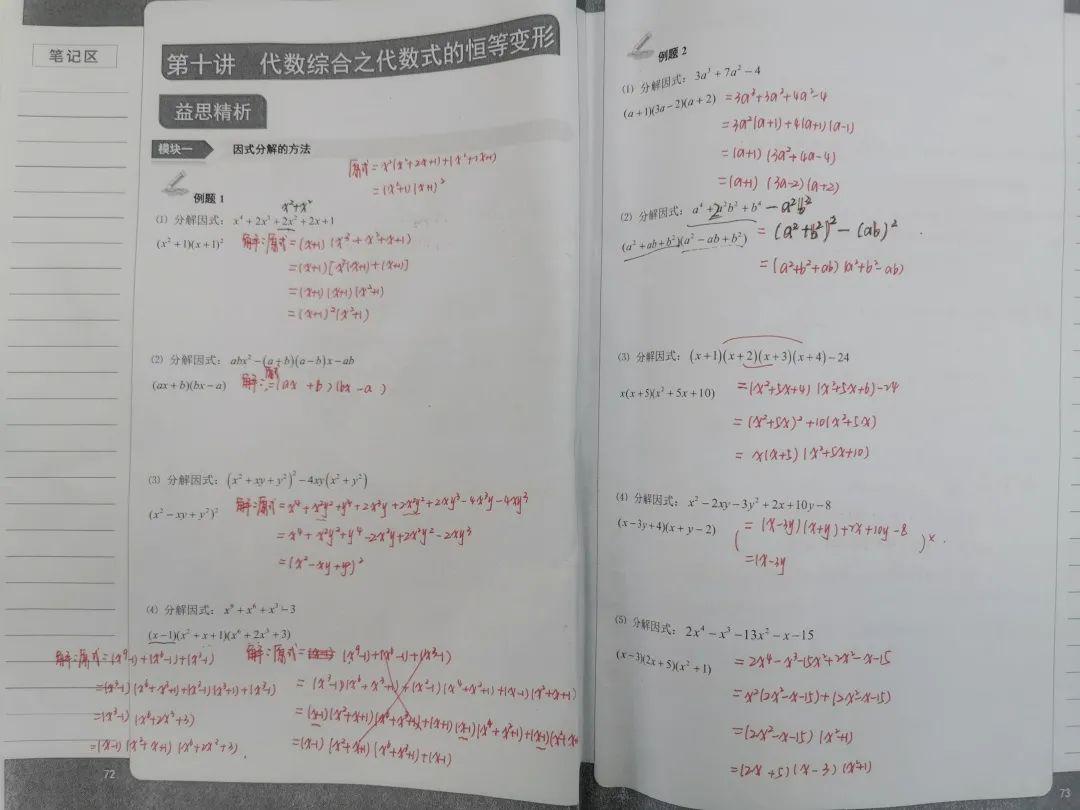 笔记区
第十讲 代数综合之代数式的恒等变形
益思精析
模块一 因式分解的方法
原式=x²(x²+2x+1)+(x²+2x+1)
=(x²+1)(x+1)²
例题 1
x²+x²
(1) 分解因式：x⁴+2x³+2x²+2x+1
(x²+1)(x+1)² 解：原式=(x+1)(x³+x²+x+1)
=(x+1)[x²(x+1)+(x+1)]
=(x+1)(x+1)(x²+1)
=(x+1)²(x²+1)
(2) 分解因式：abx²-(a+b)(a-b)x-ab
(ax+b)(bx-a) 解：原=(ax+b)(bx-a)
(3) 分解因式：(x²+xy+y²)²-4xy(x²+y²)
(x²-xy+y²)² 解：原式=x⁴+x²y²+y⁴+2x³y+2x²y²+2xy³-4x³y-4xy³
=x⁴+x²y²+y⁴-2x³y+2x²y²-2xy³
=(x²-xy+y²)²
(4) 分解因式：x⁹+x⁶+x³-3
(x-1)(x²+x+1)(x⁶+2x³+3)
解：原式=(x⁹-1)+(x⁶-1)+(x³-1)
=(x³-1)(x⁶+x³+1)+(x³-1)(x³+1)+(x³-1)
=(x³-1)(x⁶+2x³+3)
=(x-1)(x²+x+1)(x⁶+2x³+3).
解：原式=(x⁹-1)+(x⁶-1)+(x³-1)
=(x³-1)(x⁶+x³+1)+(x²-1)(x⁴+x²+1)+(x-1)(x²+x+1)
=(x-1)(x²+x+1)(x⁶+x³+1)+(x+1)(x-1)(x⁴+x²+1)+(x-1)(x²+x+
=(x-1)(x²+x+1)(x⁶+x³+1)+(x-1)
72
例题 2
(1) 分解因式：3a³+7a²-4
(a+1)(3a-2)(a+2) =3a³+3a²+4a²-4
=3a²(a+1)+4(a+1)(a-1)
=(a+1)(3a²+4a-4)
=(a+1)(3a-2)(a+2)
(2) 分解因式：a⁴+2a²b²+b⁴-a²b²
(a²+ab+b²)(a²-ab+b²) =(a²+b²)²-(ab)²
=(a²+b²+ab)(a²+b²-ab)
(3) 分解因式：(x+1)(x+2)(x+3)(x+4)-24
x(x+5)(x²+5x+10) =(x²+5x+4)(x²+5x+6)-24
=(x²+5x)²+10(x²+5x)
=x(x+5)(x²+5x+10)
(4) 分解因式：x²-2xy-3y²+2x+10y-8
(x-3y+4)(x+y-2) (=(x-3y)(x+y)+2x+10y-8)×
=(x-3y
(5) 分解因式：2x⁴-x³-13x²-x-15
(x-3)(2x+5)(x²+1) =2x⁴-x³-15x²+2x²-x-15
=x²(2x²-x-15)+(2x²-x-15)
=(2x²-x-15)(x²+1)
=(2x+5)(x-3)(x²+1)
73